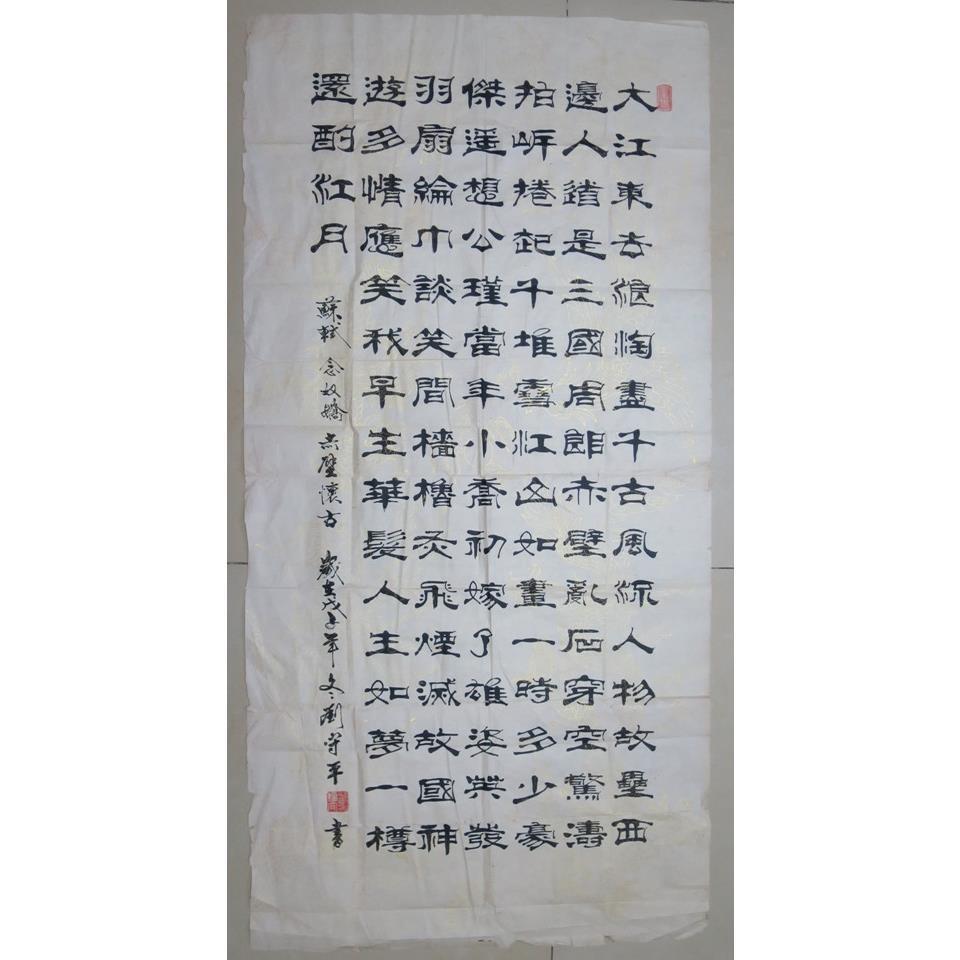 大江東去浪淘盡千古風流人物故壘西
邊人道是三國周郎赤壁亂石穿空驚濤
拍岸捲起千堆雪江山如畫一時多少豪
傑遥想公瑾當年小喬初嫁了雄姿英發
羽扇綸巾談笑間檣櫓灰飛煙滅故國神
遊多情應笑我早生華髮人生如夢一樽
還酹江月
蘇軾 念奴嬌 赤壁懷古 歲在戊子年冬劉守平 書